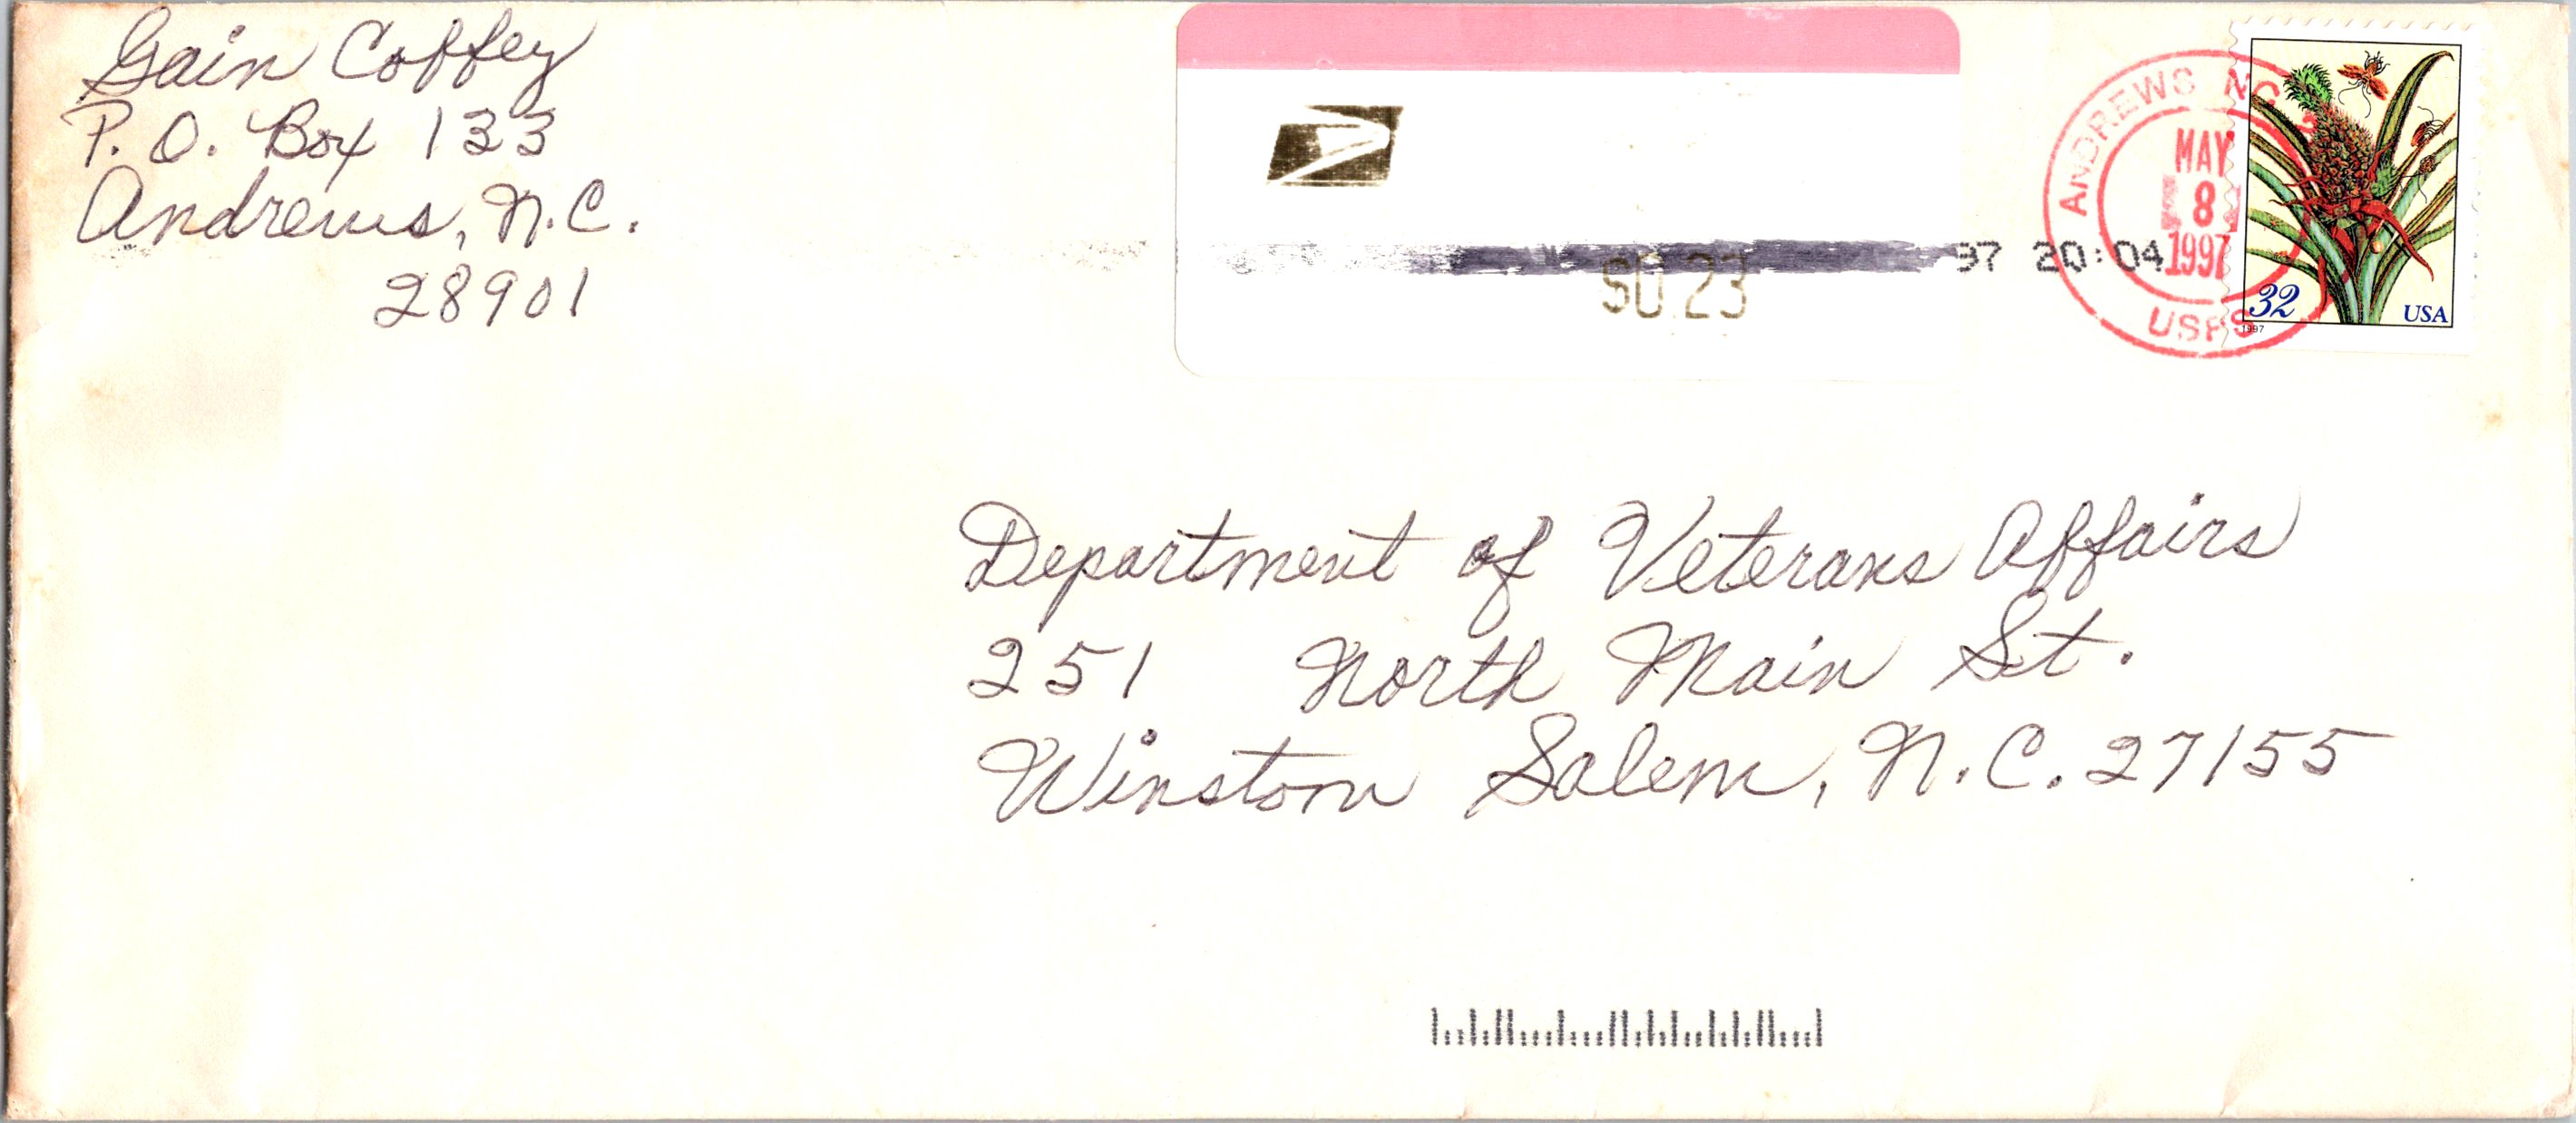 Gain Coffey
P. O. Box 133
Andrews, N.C.
28901
$0.23
97 20:04
ANDREWS NC
MAY
8
1997
USPS
32
USA
1997
Department of Veterans Affairs
251 North Main St.
Winston Salem, N.C. 27155